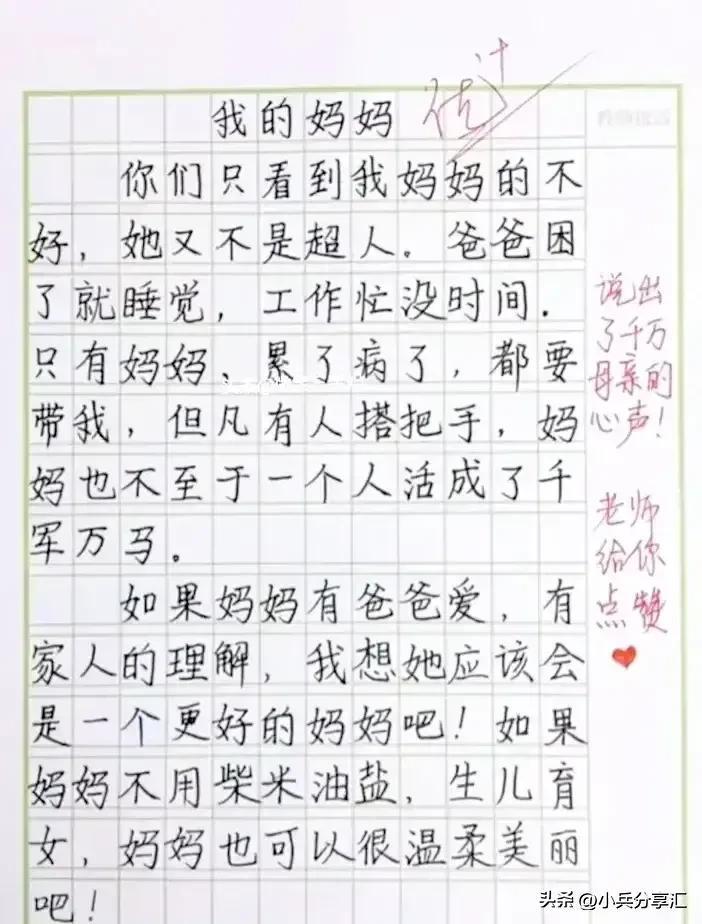 我的妈妈
优+
你们只看到我妈妈的不
好，她又不是超人。爸爸困
了就睡觉，工作忙没时间.
只有妈妈、累了病了，都要
带我，但凡有人搭把手，妈
妈也不至于一个人活成了千
军万马。
如果妈妈有爸爸爱，有
家人的理解，我想她应该会
是一个更好的妈妈吧！如果
妈妈不用柴米油盐，生儿育
女，妈妈也可以很温柔美丽
吧！
说出
了千万
母亲的
心声！
老师
给你
点赞
头条 @小兵分享汇